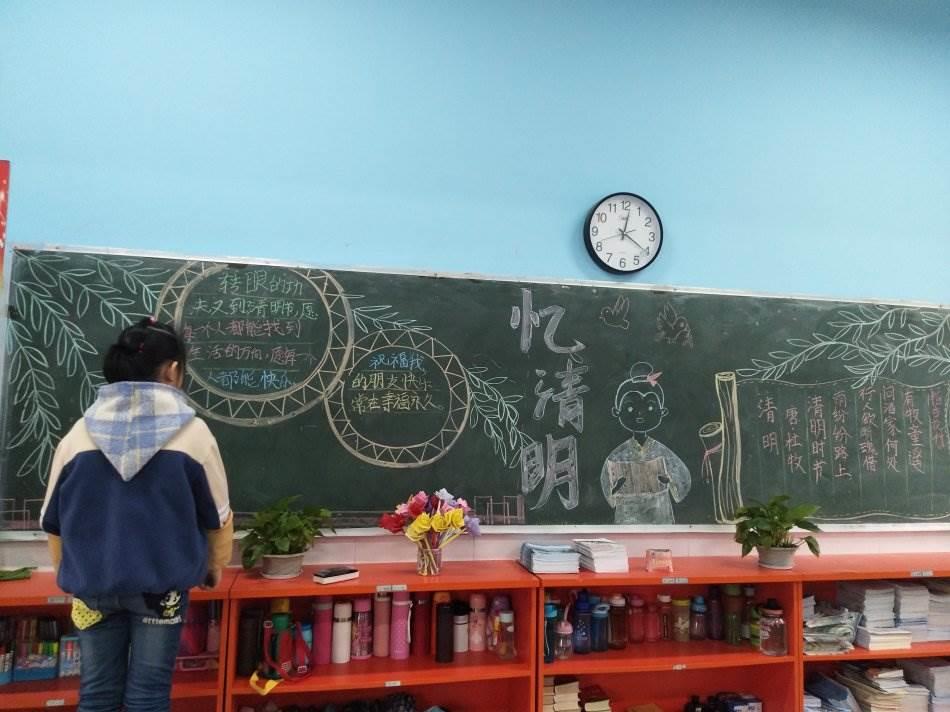 转眼的功
夫又到清明节,愿
每个人都能找到
生活的方向,愿每一个
人都能快乐
祝福我
的朋友快乐
常在幸福永久。
忆清明
清明
唐 杜牧
清明时节
雨纷纷路上
行人欲断魂借
问酒家何处
有牧童遥
12
1
2
3
4
5
6
7
8
9
10
11